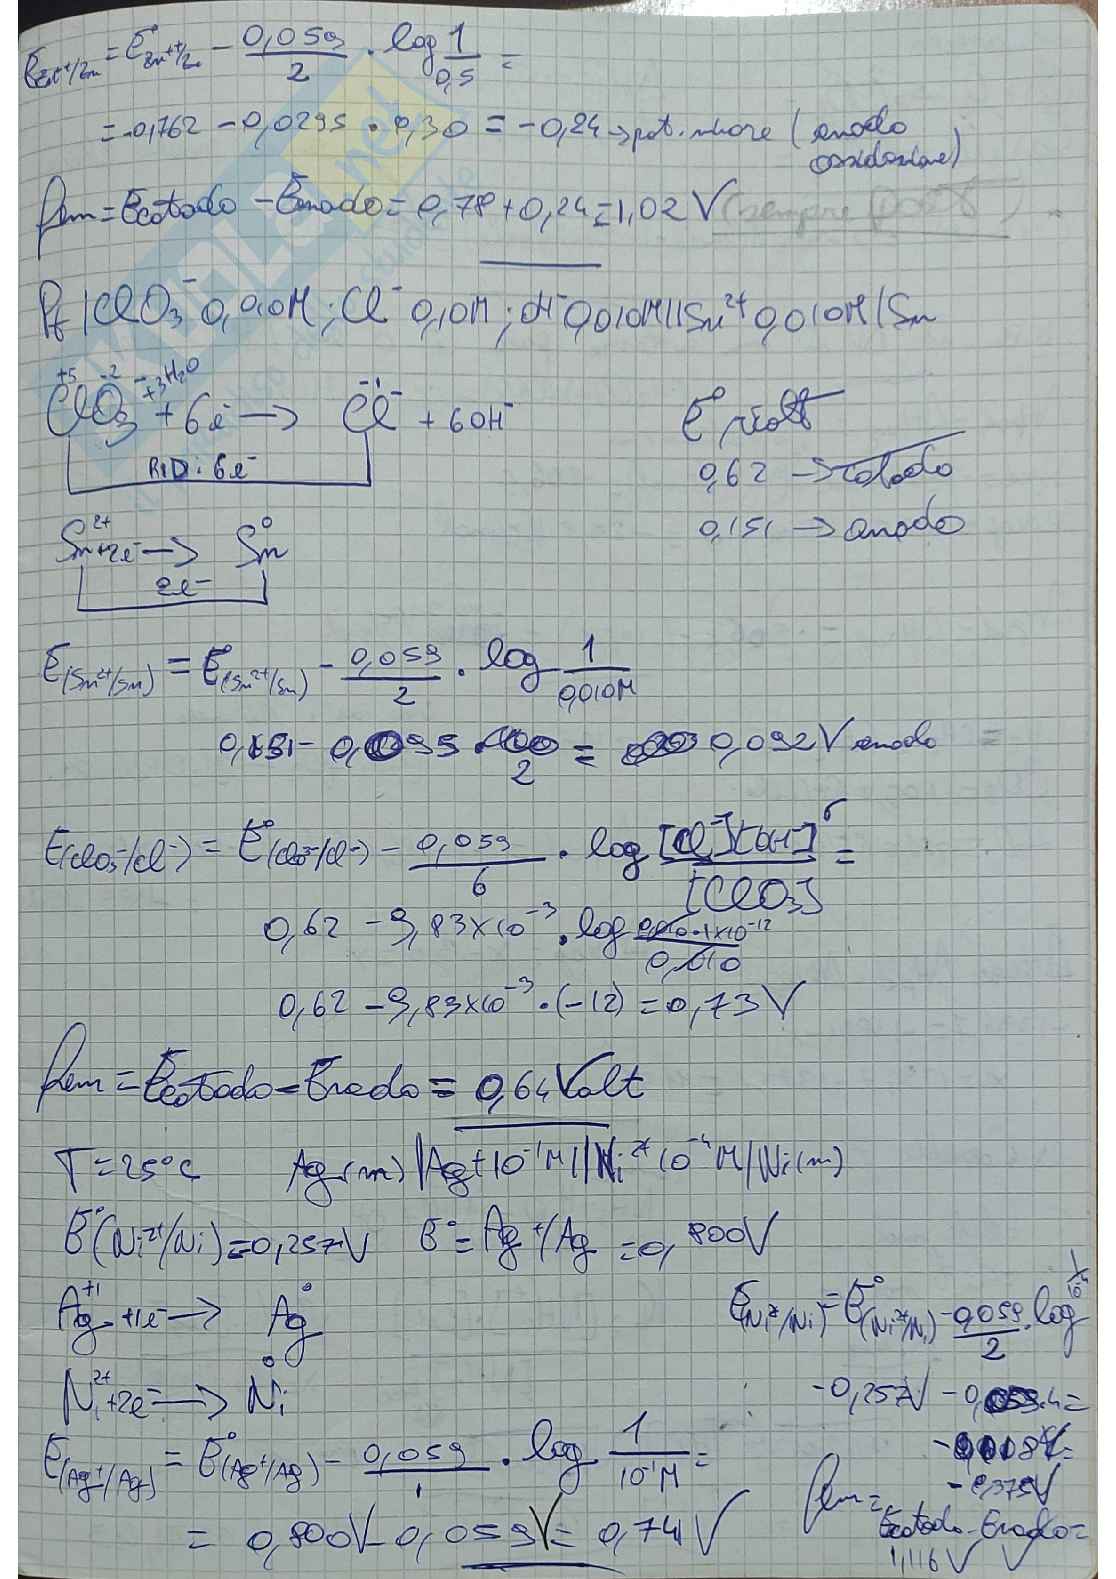 E(Zn++/Zn) = E°Zn++/Zn - 0,059/2 · log 1/0,5 =
= -0,762 - 0,0295 · 0,30 = -0,24 → pot. minore (anodo
ossidazione)
fem = Ecatodo - Eanodo = 0,78 + 0,24 = 1,02 V (sempre
Pt | ClO3- 0,010M ; Cl- 0,10M ; OH- 0,010M || Sn2+ 0,010M | Sn
+5 -2 +3H2O -1
ClO3- + 6e- → Cl- + 6OH-
E°
RID: 6e-
0,62 → catodo
Sn2+ +2e- → Sn0
0,151 → anodo
2e-
E(Sn2+/Sn) = E°(Sn2+/Sn) - 0,059/2 · log 1/0,010M
0,151 - 0,0295 · 2 = 0,092 V anodo =
E(ClO3-/Cl-) = E°(ClO3-/Cl-) - 0,059/6 · log [Cl-][OH-]6/[ClO3-] =
0,62 - 9,83x10-3 · log 0,010 · 1x10-12/0,010
0,62 - 9,83x10-3 · (-12) = 0,73 V
fem = Ecatodo - Eanodo = 0,64 Volt
T = 25°C Ag(m) | Ag+ 10-1M || Ni2+ 10-4M | Ni(m)
E°(Ni2+/Ni) = 0,257V E° = Ag+/Ag = 0,800V
Ag+1 +1e- → Ag0
E(Ni2+/Ni) = E°(Ni2+/Ni) - 0,059/2 · log 1/10-4
Ni2+ +2e- → Ni0
-0,257V - 0,059·4 =
E(Ag+/Ag) = E°(Ag+/Ag) - 0,059/1 · log 1/10-1M =
-0,375V
= 0,800V - 0,059V = 0,741 V
fem =
Ecatodo - Eanodo =
1,116 V